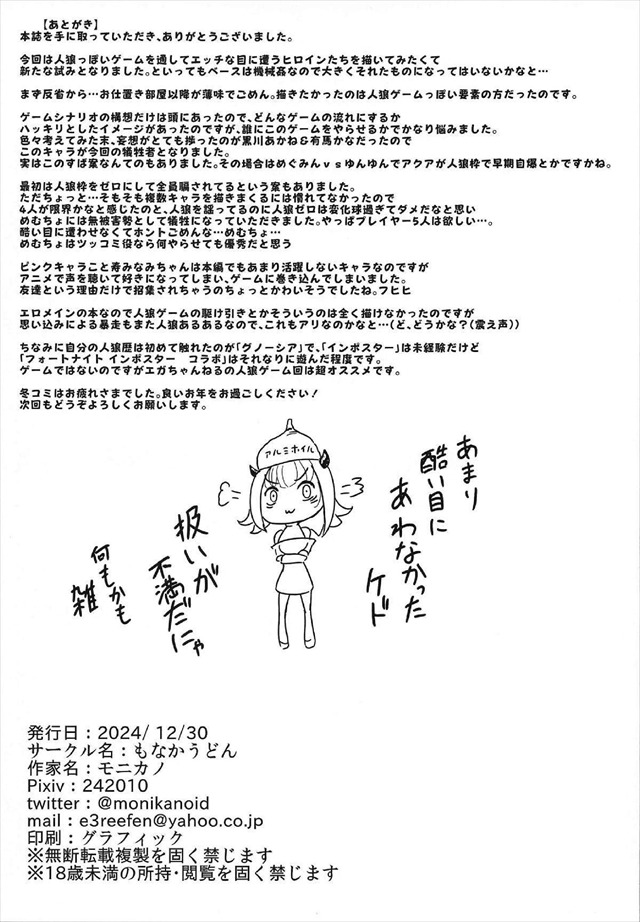 【あとがき】
本誌を手に取っていただき、ありがとうございました。
今回は人狼っぽいゲームを通してエッチな目に遭うヒロインたちを描いてみたくて
新たな試みとなりました。といってもベースは機械姦なので大きくそれたものになってはいないかなと…
まず反省から…お仕置き部屋以降が薄味でごめん。描きたかったのは人狼ゲームっぽい要素の方だったのです。
ゲームシナリオの構想だけは頭にあったので、どんなゲームの流れにするか
ハッキリとしたイメージがあったのですが、誰にこのゲームをやらせるかでかなり悩みました。
色々考えてみた末、妄想がとても捗ったのが黒川あかね&有馬かなだったので
このキャラが今回の犠牲者となりました。
実はこのすば案なんてのもありました。その場合はめぐみんvsゆんゆんでアクアが人狼枠で早期自爆とかですかね。
最初は人狼枠をゼロにして全員騙されてるという案もありました。
ただちょっと…そもそも複数キャラを描きまくるには慣れてなかったので
4人が限界かなと感じたのと、人狼を謳ってるのに人狼ゼロは変化球過ぎてダメだなと思い
めむちょには無被害勢として犠牲になっていただきました。やっぱプレイヤー5人は欲しい…。
酷い目に遭わせなくてホントごめんな…めむちょ…
めむちょはツッコミ役なら何やらせても優秀だと思う
ピンクキャラこと寿みなみちゃんは本編でもあまり活躍しないキャラなのですが
アニメで声を聴いて好きになってしまい、ゲームに巻き込んでしまいました。
友達という理由だけで招集されちゃうのちょっとかわいそうでしたね。フヒヒ
エロメインの本なので人狼ゲームの駆け引きとかそういうのは全く描けなかったのですが
思い込みによる暴走もまた人狼あるあるなので、これもアリなのかなと…(ど、どうかな?(震え声))
ちなみに自分の人狼歴は初めて触れたのが「グノーシア」で、「インポスター」は未経験だけど
「フォートナイト インポスター コラボ」はそれなりに遊んだ程度です。
ゲームではないのですがエガちゃんねるの人狼ゲーム回は超オススメです。
冬コミはお疲れさまでした。良いお年をお過ごしください!
次回もどうぞよろしくお願いします。
アルミホイル
あまり
酷い目に
あわなかった
ケド
扱いが
不満だにゃ
何もかも
雑
発行日:2024/ 12/30
サークル名:もなかうどん
作家名:モニカノ
Pixiv:242010
twitter:@monikanoid
mail:e3reefen@yahoo.co.jp
印刷:グラフィック
※無断転載複製を固く禁じます
※18歳未満の所持・閲覧を固く禁じます